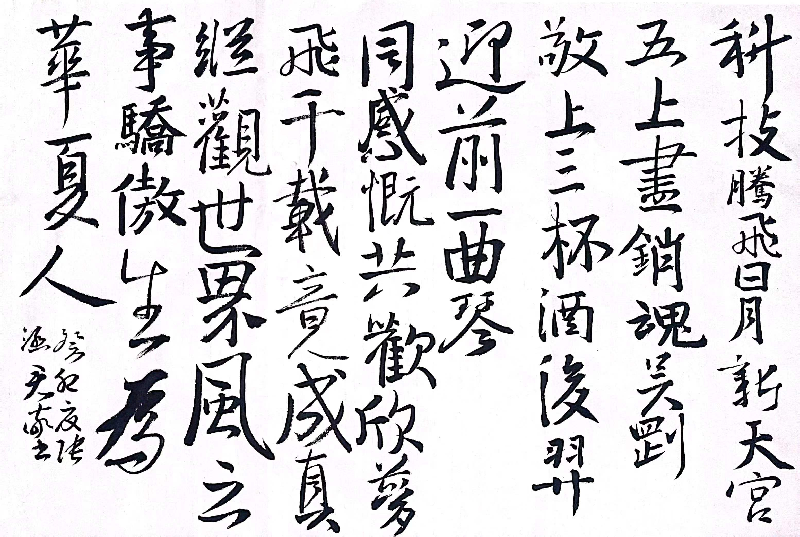 科技騰飛日月新天宮
五上畫銷魂吴剛
敬上三杯酒後羿
迎前一曲琴
同感慨共歡欣夢
飛千載竟成真
縱觀世界風之
事驕傲生為
華夏人
癸卯夏張
天豪書